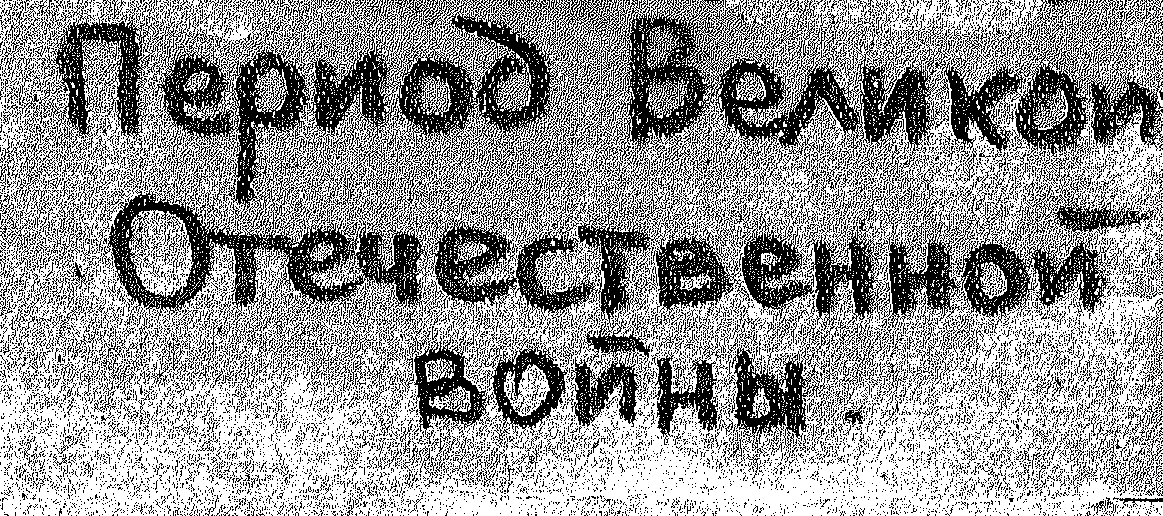 Период Великой
Отечественной
войны.